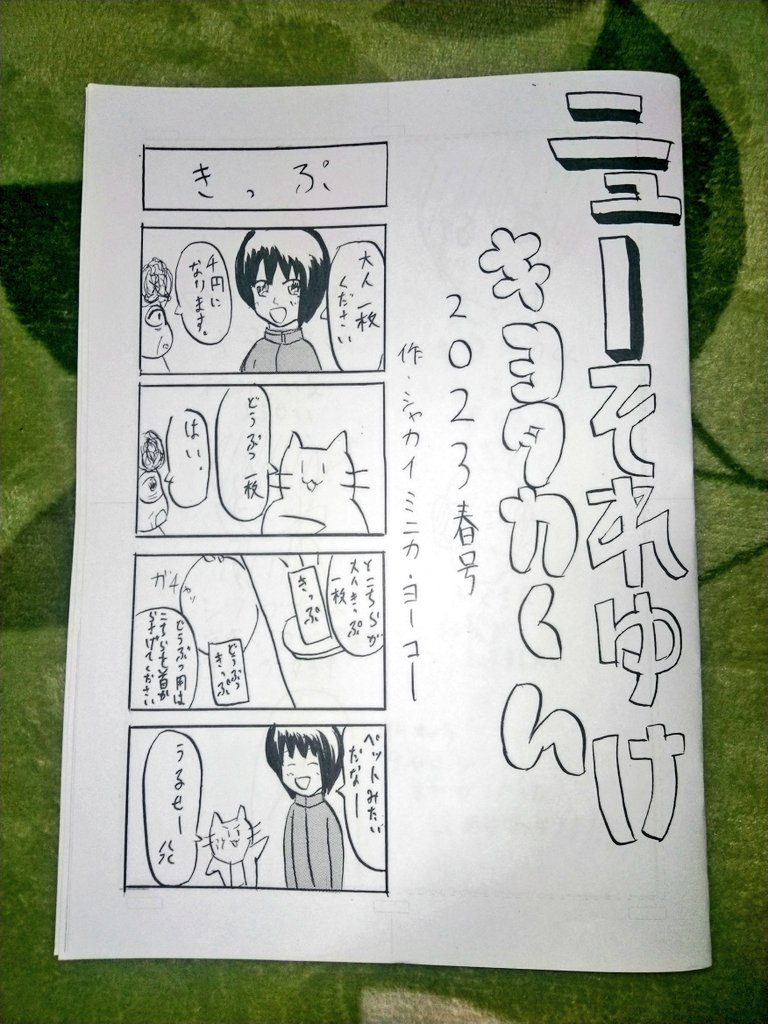 ニューそれゆけ
キヨタカくん
2023春号
作・シャカイミニカ・ヨーコー
きっぷ
大人一枚
ください
千円に
なります。
どうぶつ一枚
はい。
こちらが
大人きっぷ
一枚
きっぷ
ガチャッ
どうぶつ
きっぷ
どうぶつ用は
こちらを首から
さげてください
ペットみたい
だなー
うるせー